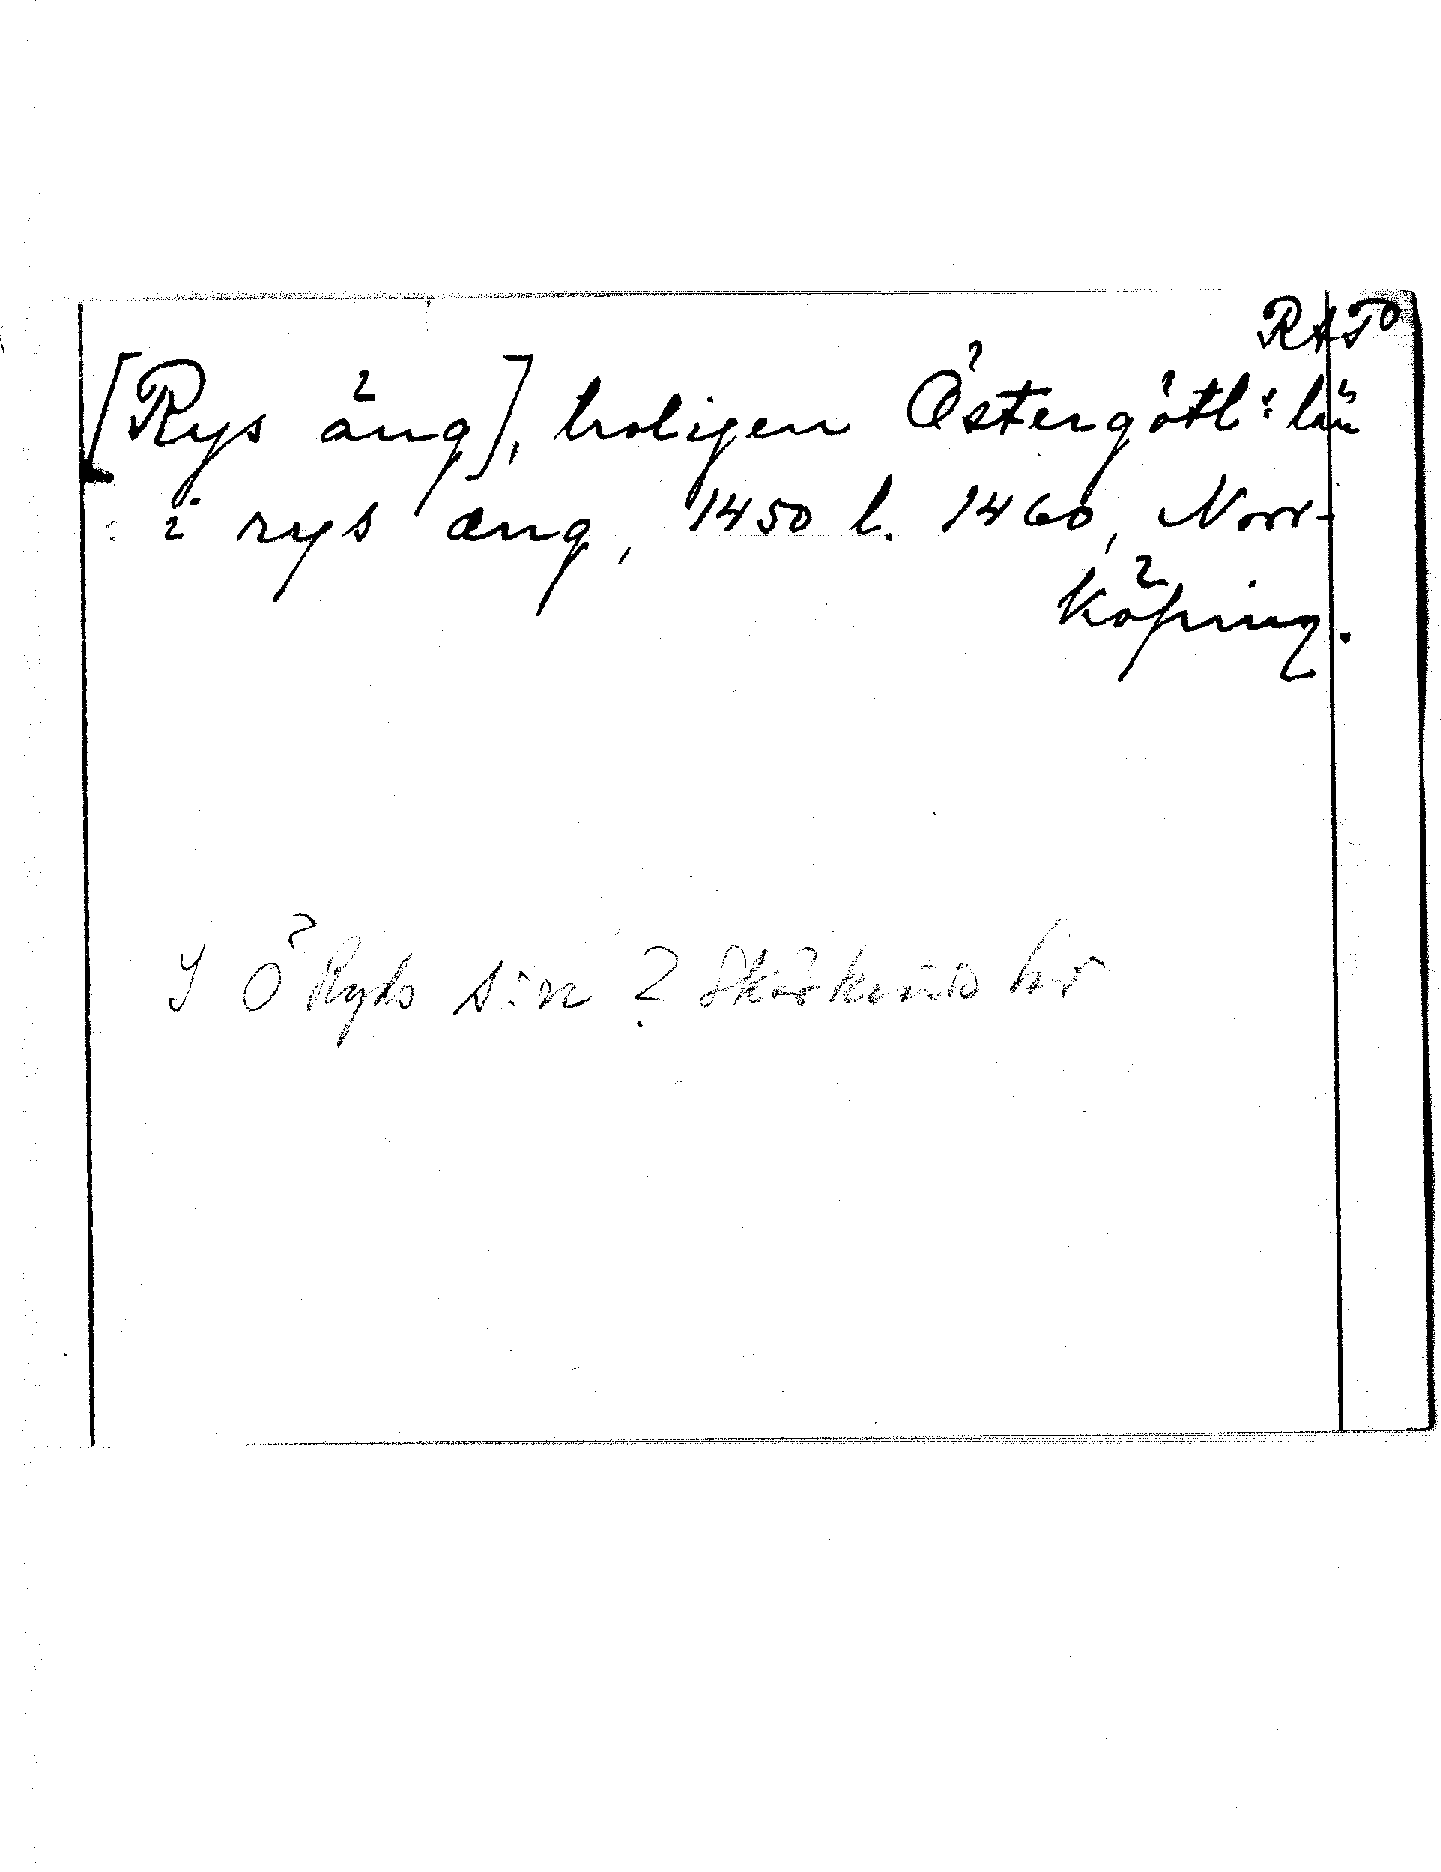 RAP
[Rys äng], troligen Östergötl:s län
i rys æng, 1450 l. 1460, Norr-
köping.
I Ö Ryds s:n ? Skärkinds hd